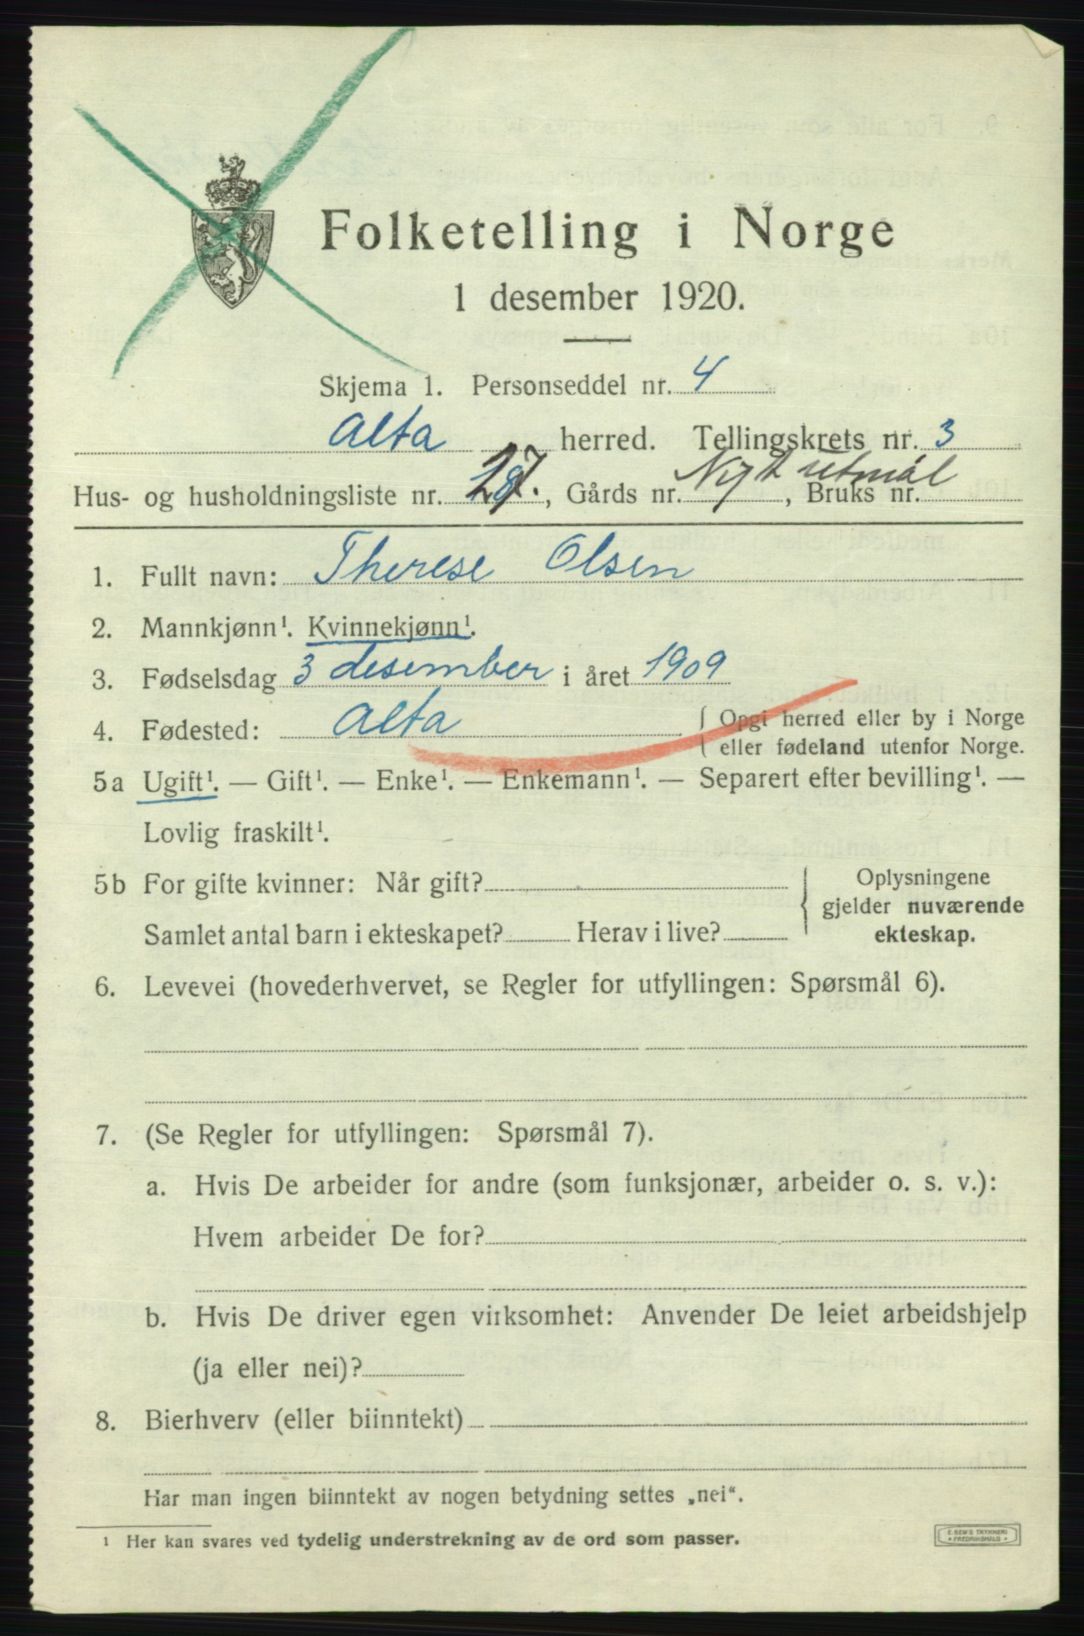 Folketelling i Norge
1 desember 1920.
Skjema 1. Personseddel nr. 4
Alta herred. Tellingskrets nr. 3
Hus- og husholdningsliste nr. 27., Gårds nr. Nytt utmål, Bruks nr.
1. Fullt navn: Therese Olsen
2. Mannkjønn¹. Kvinnekjønn¹.
3. Fødselsdag 3 desember i året 1909
4. Fødested: Alta { Opgi herred eller by i Norge
eller fødeland utenfor Norge.
5a Ugift¹. — Gift¹. — Enke¹. — Enkemann¹. — Separert efter bevilling¹. —
Lovlig fraskilt¹.
5b For gifte kvinner: Når gift? { Oplysningene
gjelder nuværende
Samlet antal barn i ekteskapet? Herav i live? ekteskap.
6. Levevei (hovederhvervet, se Regler for utfyllingen: Spørsmål 6).
7. (Se Regler for utfyllingen: Spørsmål 7).
a. Hvis De arbeider for andre (som funksjonær, arbeider o. s. v.):
Hvem arbeider De for?
b. Hvis De driver egen virksomhet: Anvender De leiet arbeidshjelp
(ja eller nei)?
8. Bierhverv (eller biinntekt)
Har man ingen biinntekt av nogen betydning settes „nei“.
¹ Her kan svares ved tydelig understrekning av de ord som passer.
E. SEM'S TRYKKERI
FREDRIKSHALD